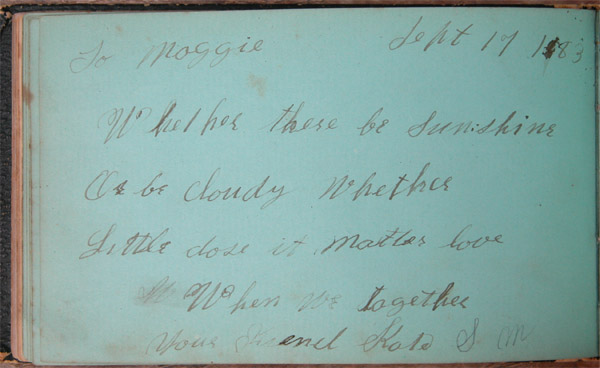 To Maggie Sept 17 1883
Whether there be sunshine
Or be cloudy Whether
Little dose it Matter love
When we together
Your Friend Kate S. M